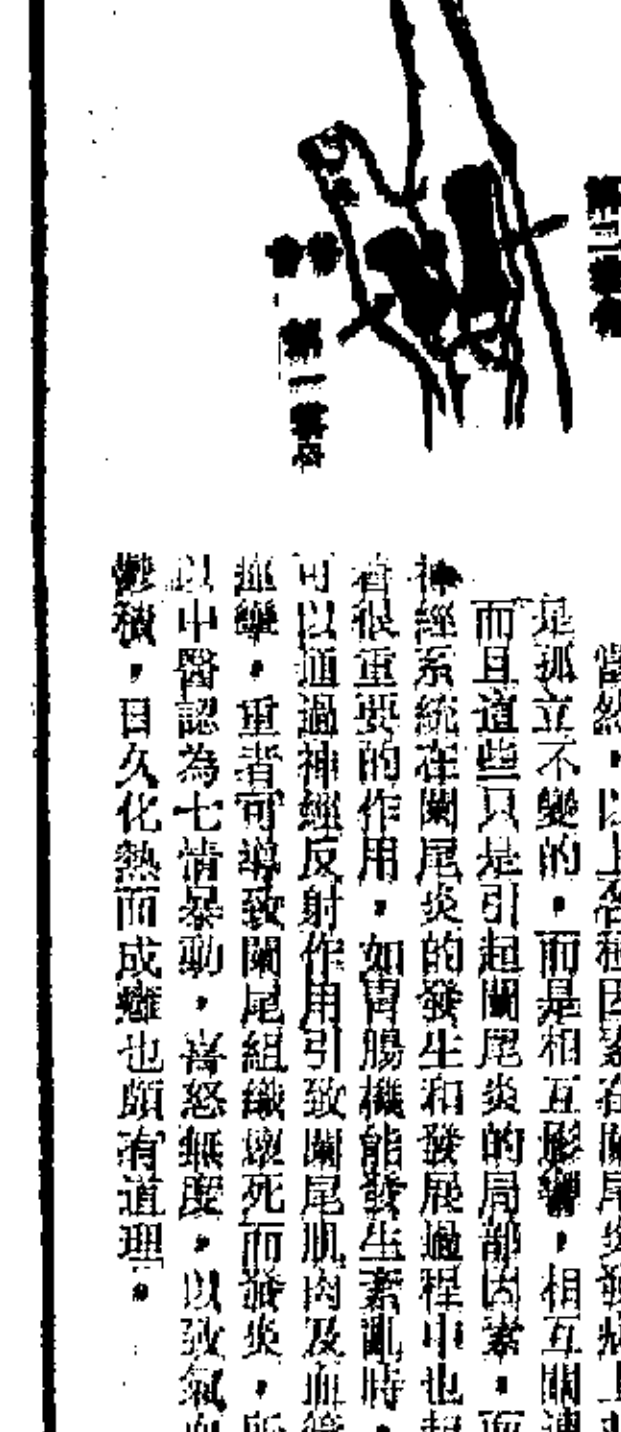 當然，以上各種因素在闌尾炎發病上
是孤立不變的，而是相互影響，相互關連
而且這些只是引起闌尾炎的局部因素，而
神經系統在闌尾炎的發生和發展過程中也起
着很重要的作用，如胃腸機能發生紊亂時，
可以通過神經反射作用引致闌尾肌肉及血管
痙攣，重者可導致闌尾組織壞死而發炎，所
以中醫認為七情暴動，喜怒無度，以致氣血
鬱積，日久化熱而成癰也頗有道理。